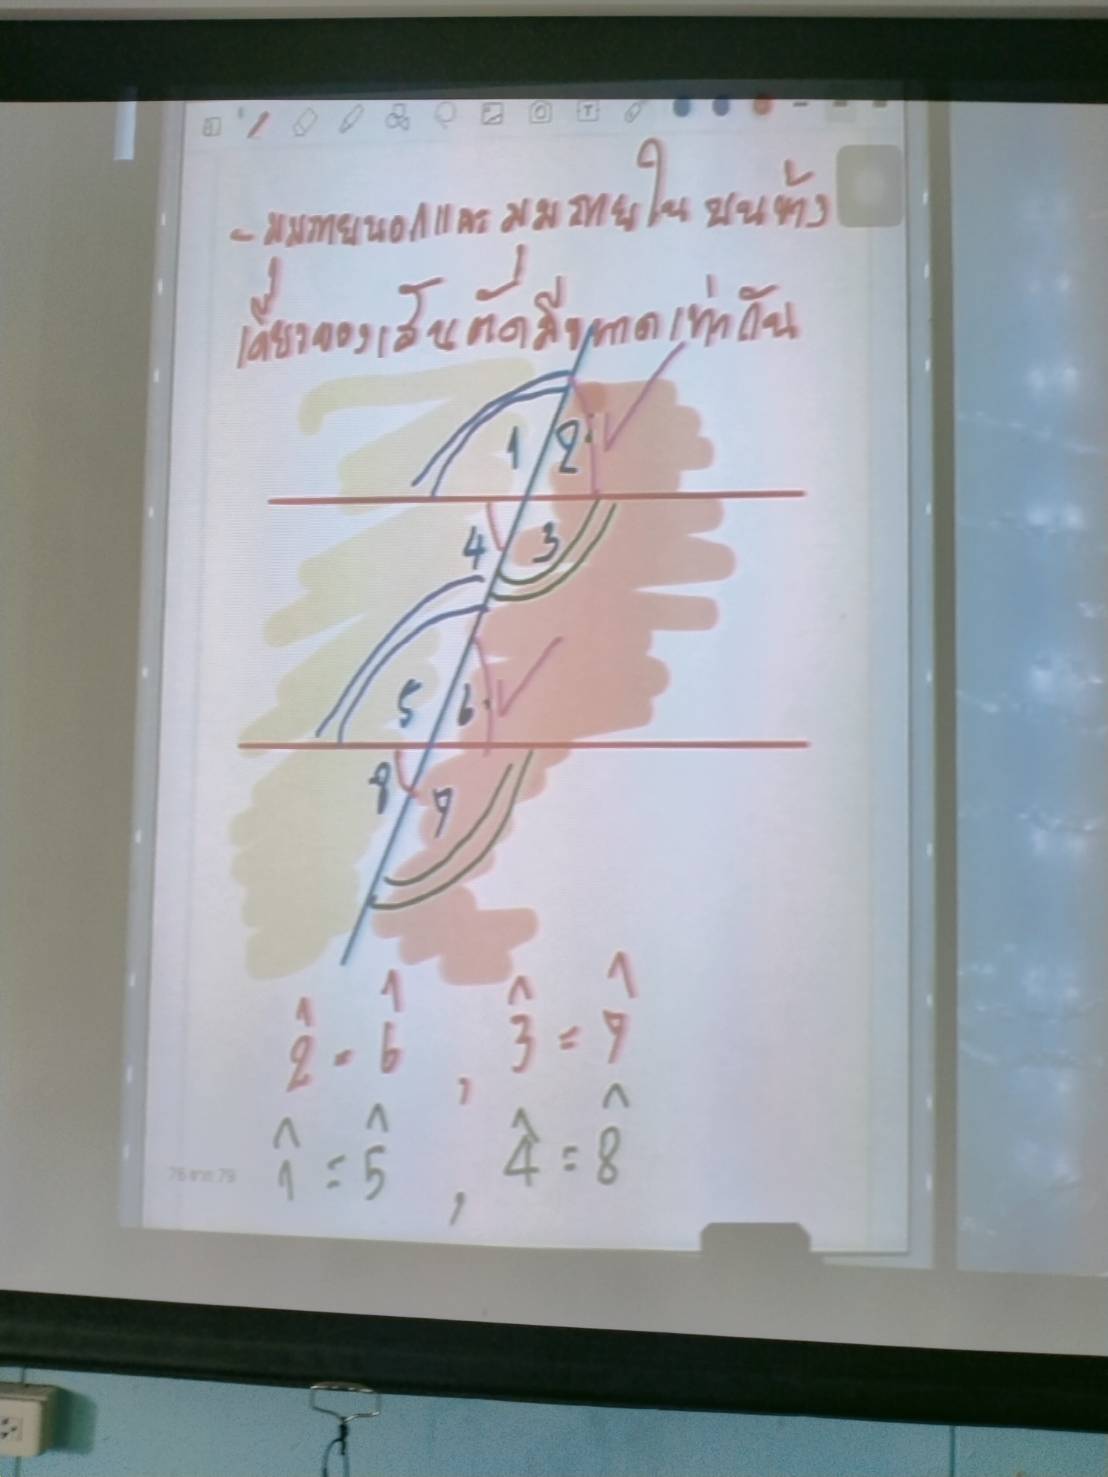 - มุมภายนอกและมุมภายใน บนข้าง
เดียวของเส้นตัดมีขนาดเท่ากัน
1 2
4 3
5 6
8 7
2̂ = 6̂ , 3̂ = 7̂
1̂ = 5̂ , 4̂ = 8̂
78 จาก 79